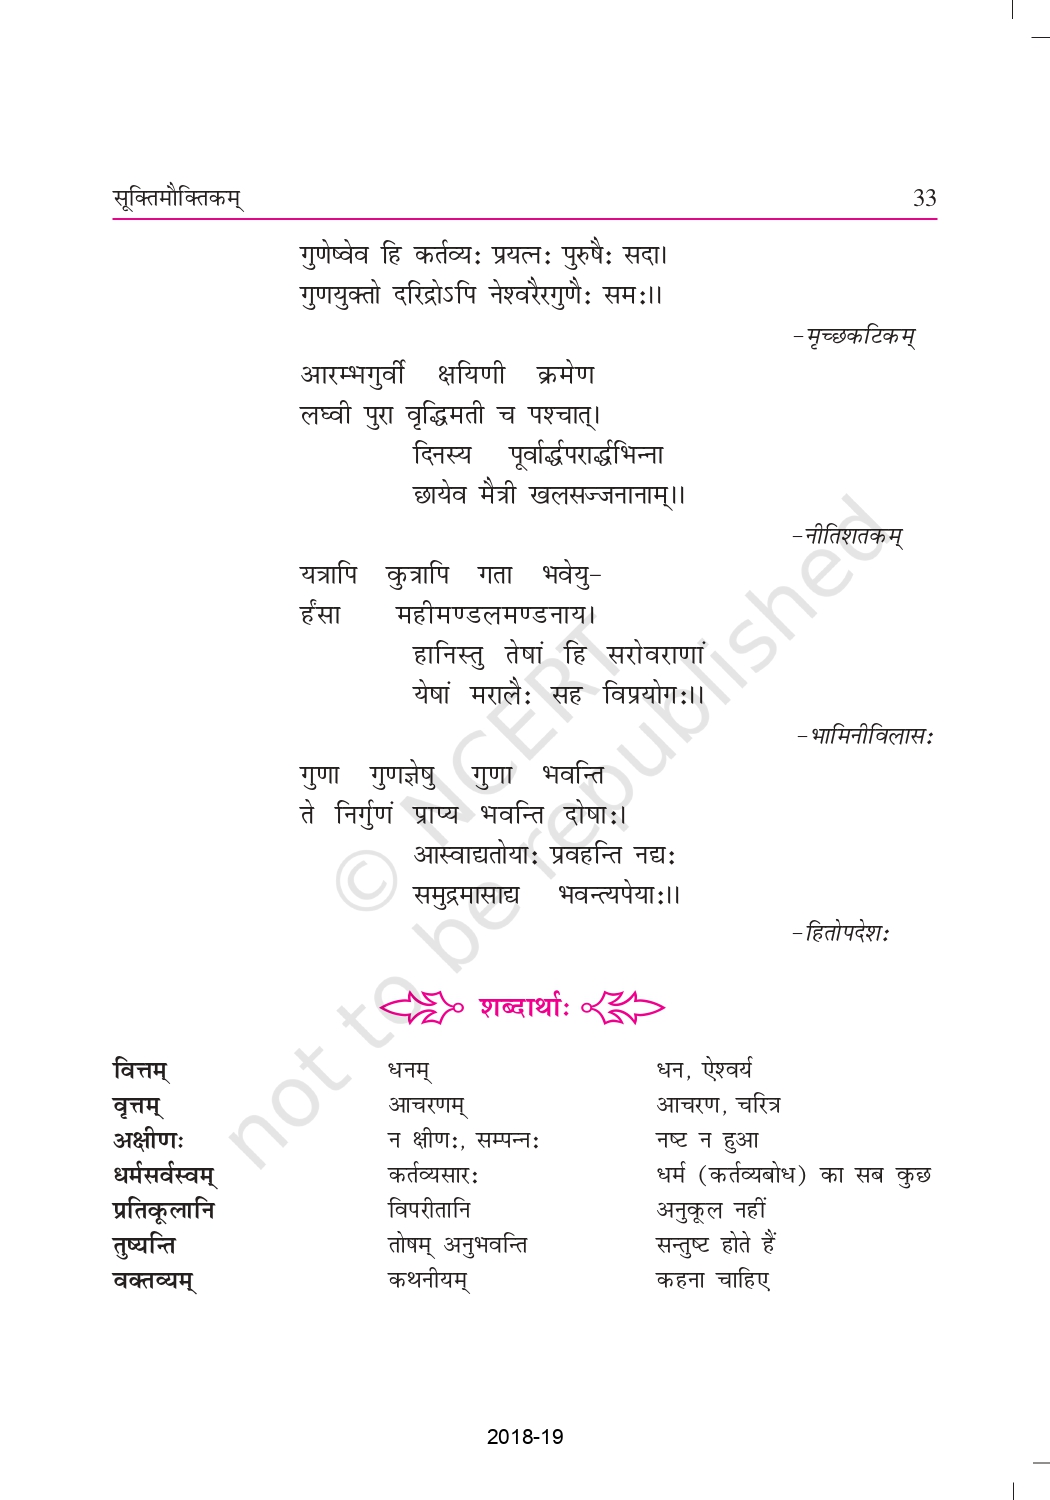 सूक्तिमौक्तिकम् 33
गुणेष्वेव हि कर्तव्यः प्रयत्नः पुरुषैः सदा।
गुणयुक्तो दरिद्रोऽपि नेश्वरैरगुणैः समः।।
–मृच्छकटिकम्
आरम्भगुर्वी क्षयिणी क्रमेण
लघ्वी पुरा वृद्धिमती च पश्चात्।
दिनस्य पूर्वार्द्धपरार्द्धभिन्ना
छायेव मैत्री खलसज्जनानाम्।।
–नीतिशतकम्
यत्रापि कुत्रापि गता भवेयु–
र्हंसा महीमण्डलमण्डनाय।
हानिस्तु तेषां हि सरोवराणां
येषां मरालैः सह विप्रयोगः।।
–भामिनीविलासः
गुणा गुणज्ञेषु गुणा भवन्ति
ते निर्गुणं प्राप्य भवन्ति दोषाः।
आस्वाद्यतोयाः प्रवहन्ति नद्यः
समुद्रमासाद्य भवन्त्यपेयाः।।
–हितोपदेशः
शब्दार्थाः
वित्तम् धनम् धन, ऐश्वर्य
वृत्तम् आचरणम् आचरण, चरित्र
अक्षीणः न क्षीणः, सम्पन्नः नष्ट न हुआ
धर्मसर्वस्वम् कर्तव्यसारः धर्म (कर्तव्यबोध) का सब कुछ
प्रतिकूलानि विपरीतानि अनुकूल नहीं
तुष्यन्ति तोषम् अनुभवन्ति सन्तुष्ट होते हैं
वक्तव्यम् कथनीयम् कहना चाहिए
© NCERT
not to be republished
2018-19